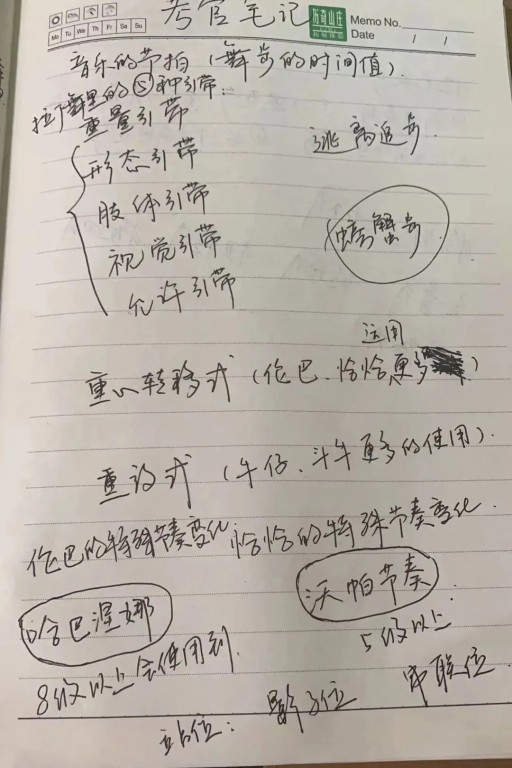 考官笔记
历奇山庄
Memo No.
Mo Tu We Th Fr Sa Su
Date / /
音乐的节拍(舞步的时间值).
拉丁舞里的⑤种引带:
重量引带
形态引带
逃离追步.
肢体引带
视觉引带
螃蟹步
允许引带
运用
重心转移式(伦巴、恰恰更多)
重设式(牛仔、斗牛更多的使用).
伦巴的特殊节奏变化
恰恰的特殊节奏变化.
哈巴涅娜
沃帕节奏
8级以上会使用到.
5级以上.
站位: 影子位 串联位.